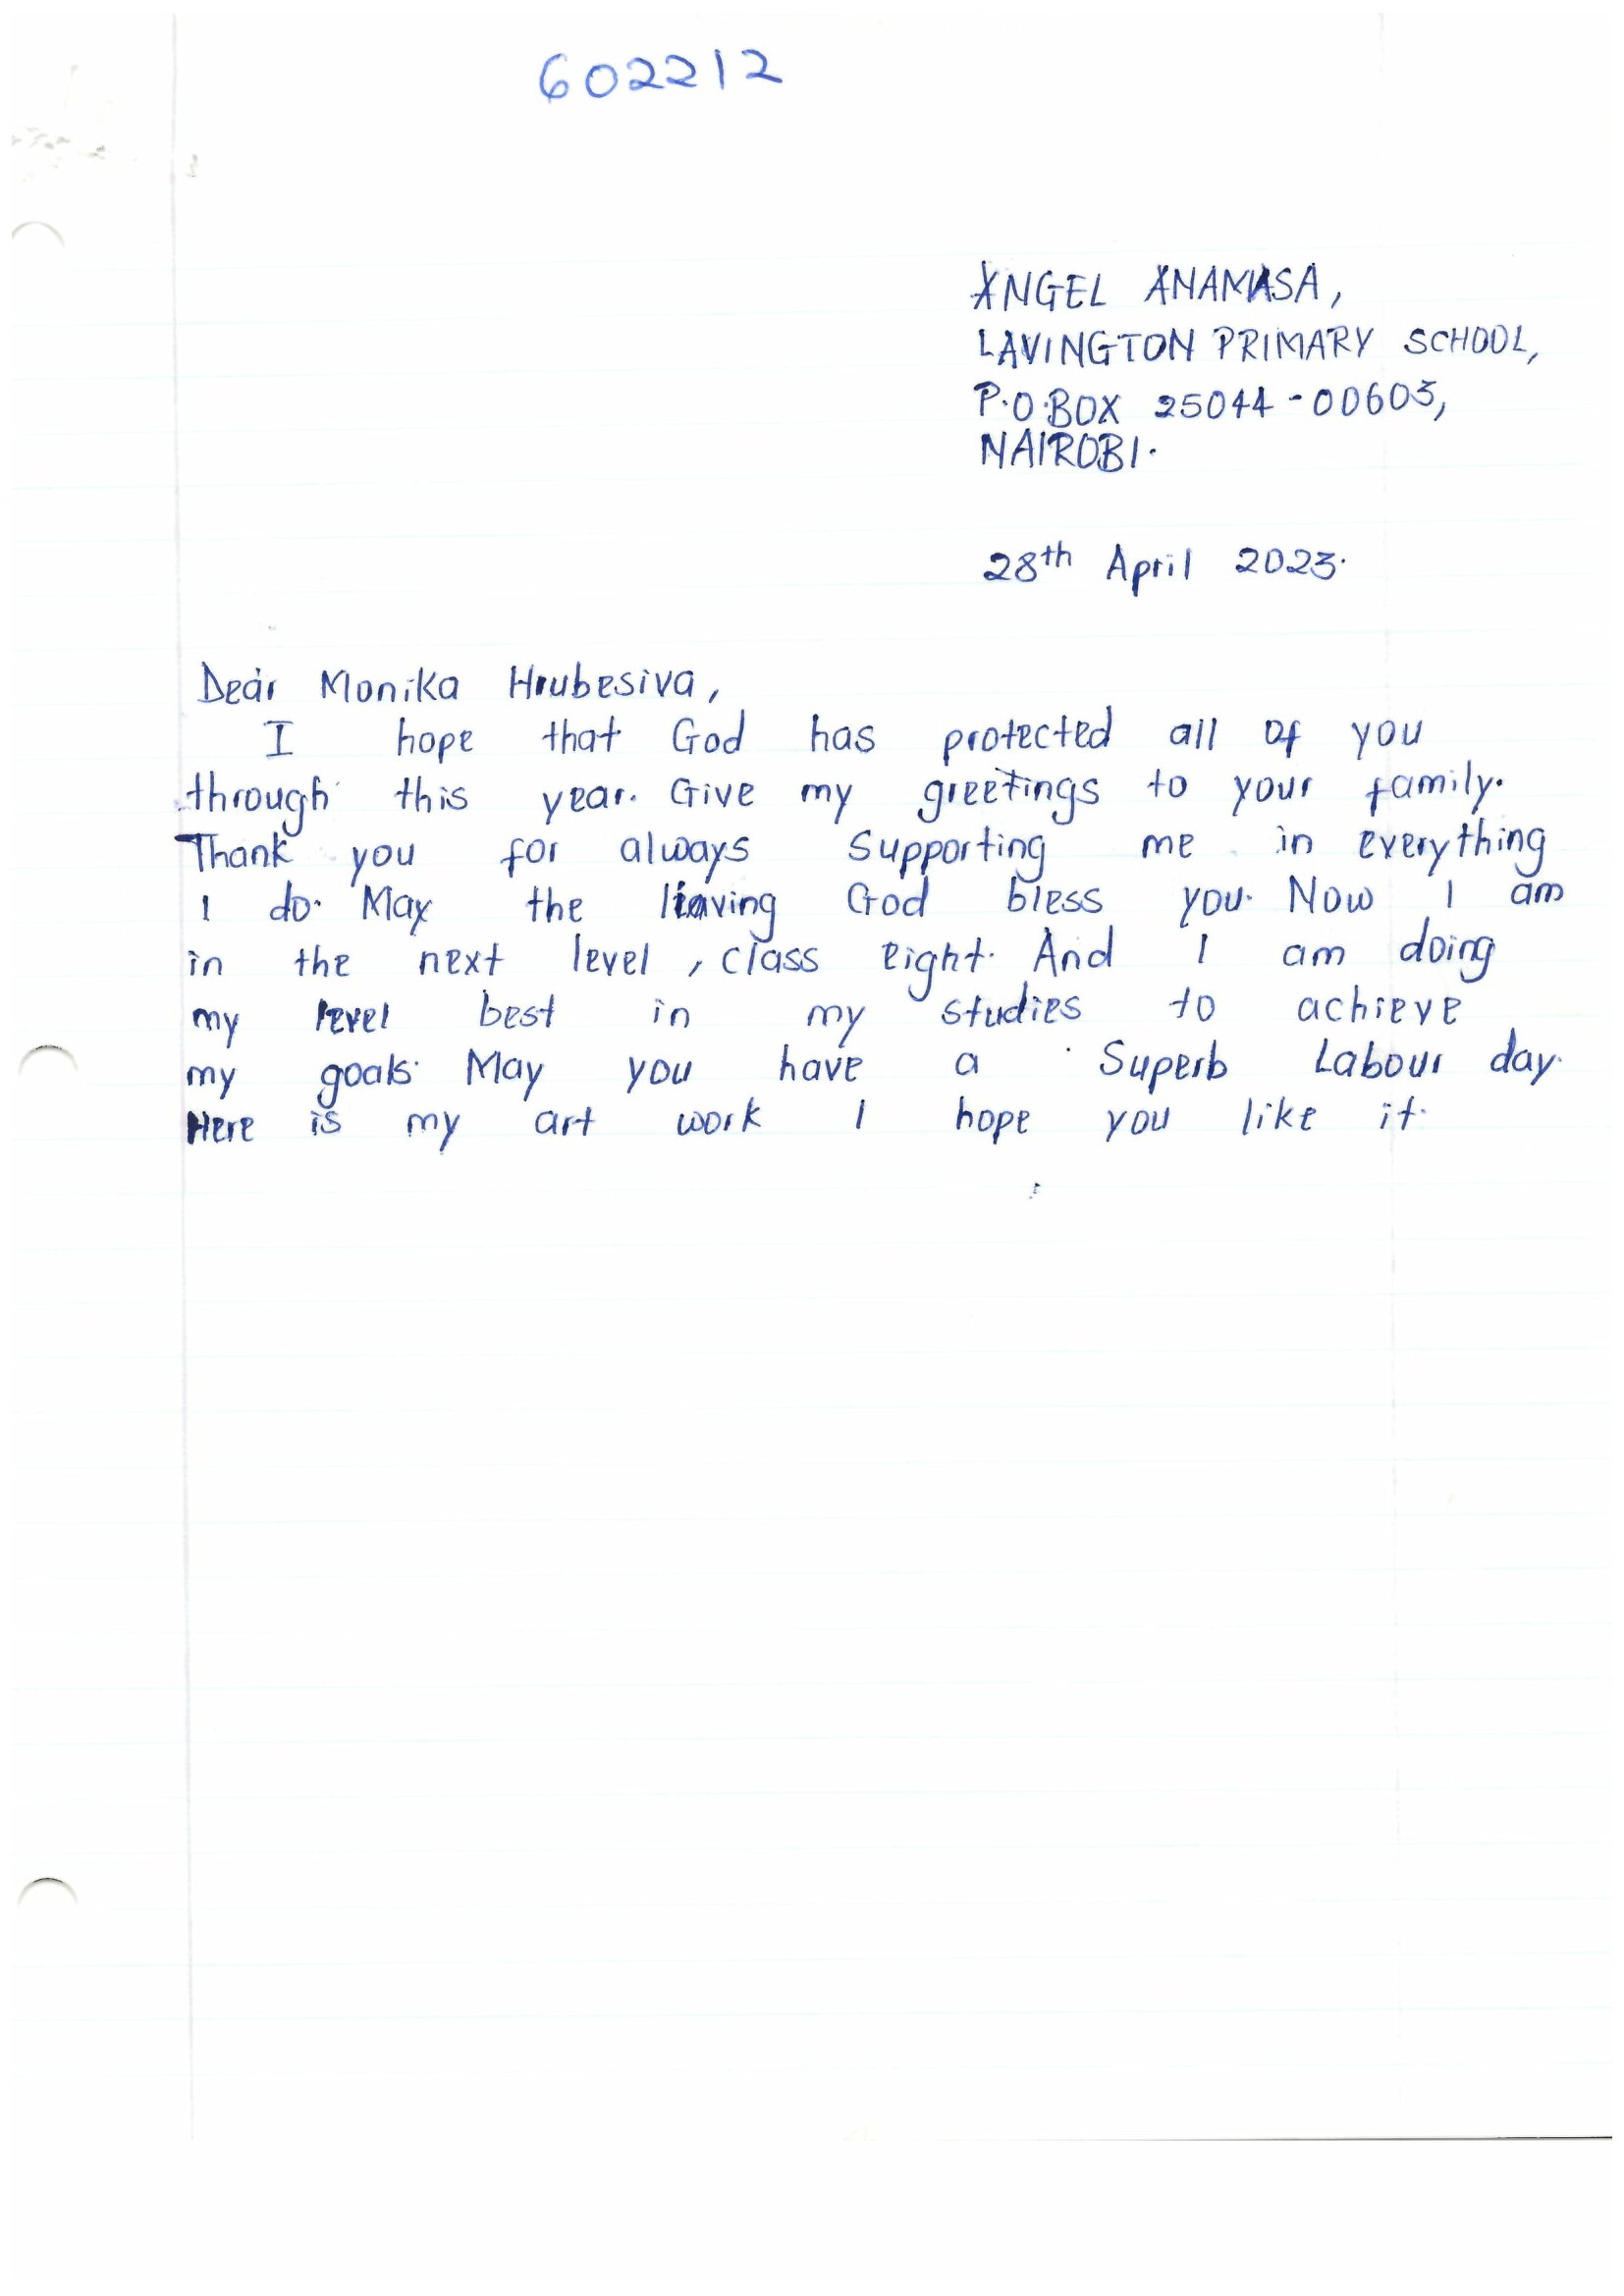 602212
ANGEL ANAMASA,
LAVINGTON PRIMARY SCHOOL,
P.O.BOX 25044-00603,
NAIROBI.
28th April 2023.
Dear Monika Hrubesiva,
I hope that God has protected all of you
through this year. Give my greetings to your family.
Thank you for always supporting me in everything
I do. May the living God bless you. Now I am
in the next level, class eight. And I am doing
my level best in my studies to achieve
my goals. May you have a Superb Labour day.
Here is my art work I hope you like it.